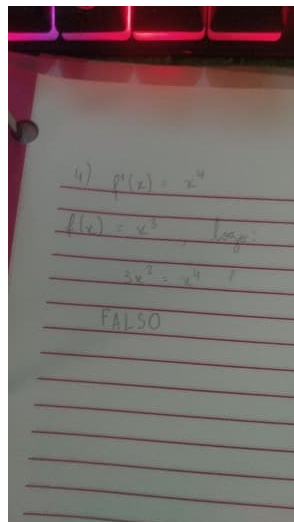 4) f'(x) = x⁴
f(x) = x³, logo:
3x² = x⁴
FALSO